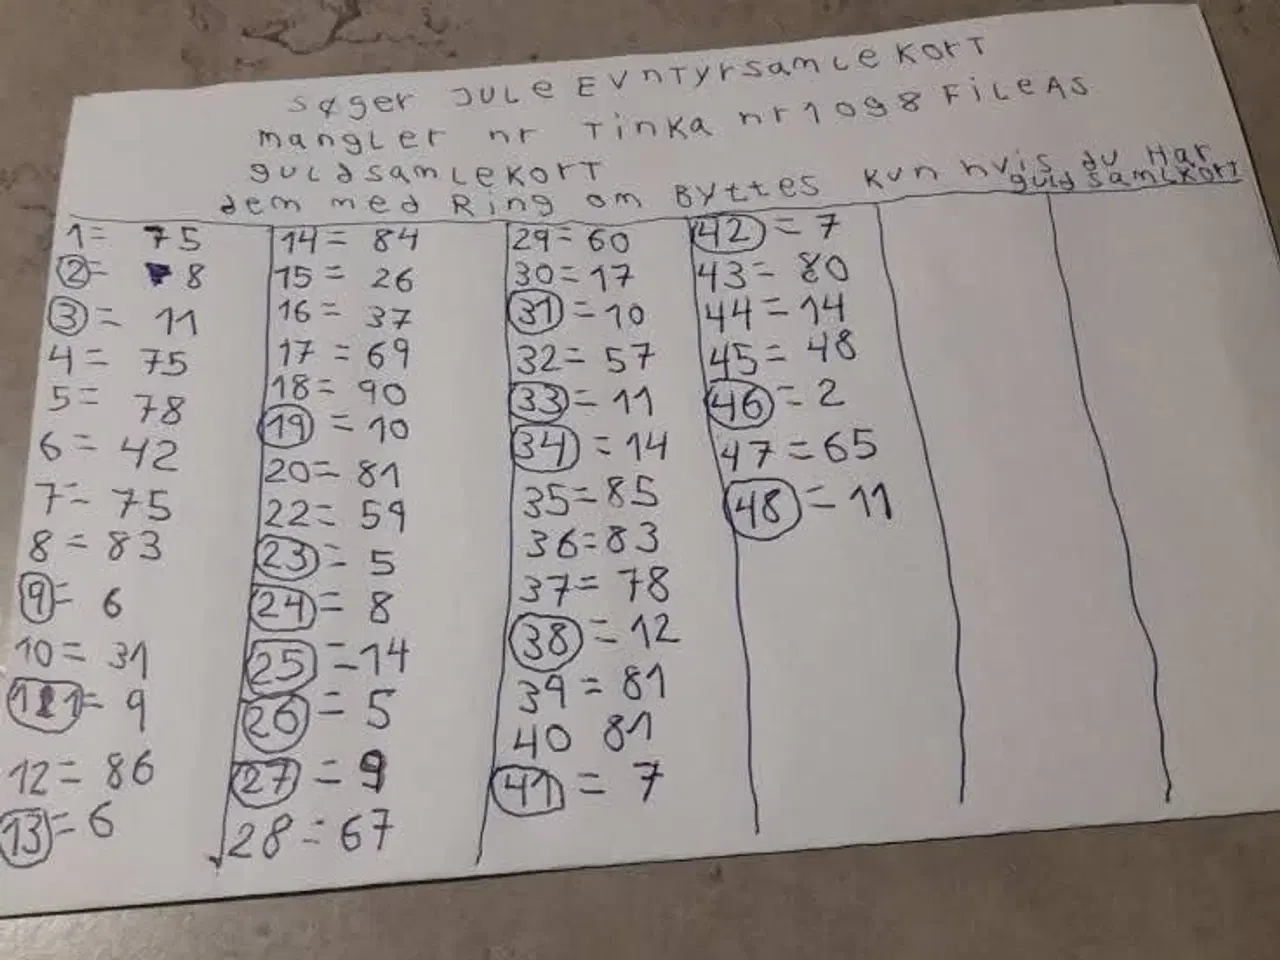 søger JULE EVNTYRSAMLEKORT
MANGLER nr TINKA nr 1 og 8 FILEAS
GULDSAMLEKORT
dem med Ring om BYTTES KUN HVIS du Har
guldsamlkort
1= 75
2= 8
3= 11
4= 75
5= 78
6= 42
7= 75
8= 83
9= 6
10= 31
11= 9
12= 86
13= 6
14= 84
15= 26
16= 37
17= 69
18= 90
19= 10
20= 81
22= 59
23= 5
24= 8
25= 14
26= 5
27= 9
28= 67
29= 60
30= 17
31= 10
32= 57
33= 11
34= 14
35= 85
36= 83
37= 78
38= 12
39= 81
40 81
41= 7
42= 7
43= 80
44= 14
45= 48
46= 2
47= 65
48= 11